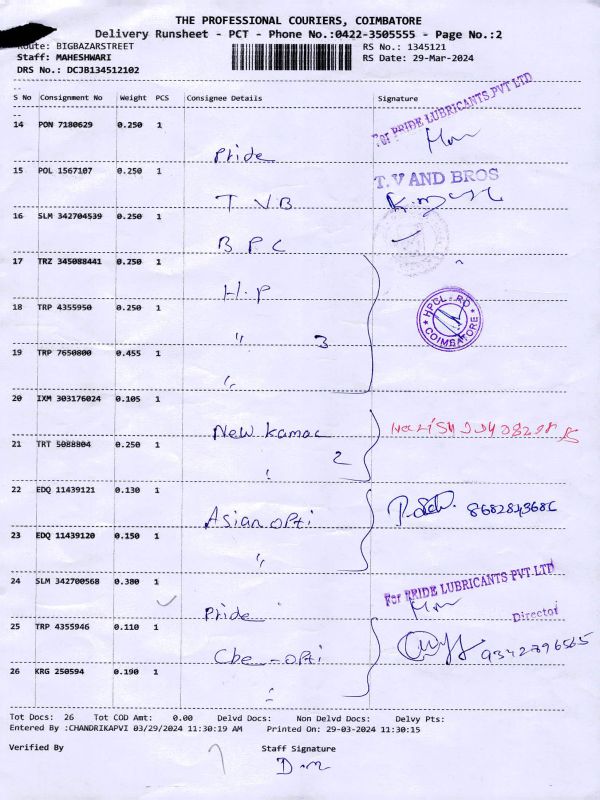 THE PROFESSIONAL COURIERS, COIMBATORE
Delivery Runsheet - PCT - Phone No.:0422-3505555 - Page No.:2
Route: BIGBAZARSTREET RS No.: 1345121
Staff: MAHESHWARI RS Date: 29-Mar-2024
DRS No.: DCJB134512102
S No Consignment No Weight PCS Consignee Details Signature
For PRIDE LUBRICANTS PVT LTD
14 PON 7180629 0.250 1
Pride
15 POL 1567107 0.250 1
T. V AND BROS
T V B
16 SLM 342704539 0.250 1
B P C
17 TRZ 345088441 0.250 1
H.P
HPCL - RO COIMBATORE
18 TRP 4355950 0.250 1
" 3
19 TRP 7650800 0.455 1
"
20 IXM 303176024 0.105 1
New Kamal
21 TRT 5088804 0.250 1
2
22 EDQ 11439121 0.130 1
Asian opti
23 EDQ 11439120 0.150 1
"
24 SLM 342700568 0.380 1
For PRIDE LUBRICANTS PVT.LTD
Pride
Director
25 TRP 4355946 0.110 1
Che - opti 9342796565
26 KRG 250594 0.190 1
"
Tot Docs: 26 Tot COD Amt: 0.00 Delvd Docs: Non Delvd Docs: Delvy Pts:
Entered By :CHANDRIKAPVI 03/29/2024 11:30:19 AM Printed On: 29-03-2024 11:30:15
Verified By Staff Signature